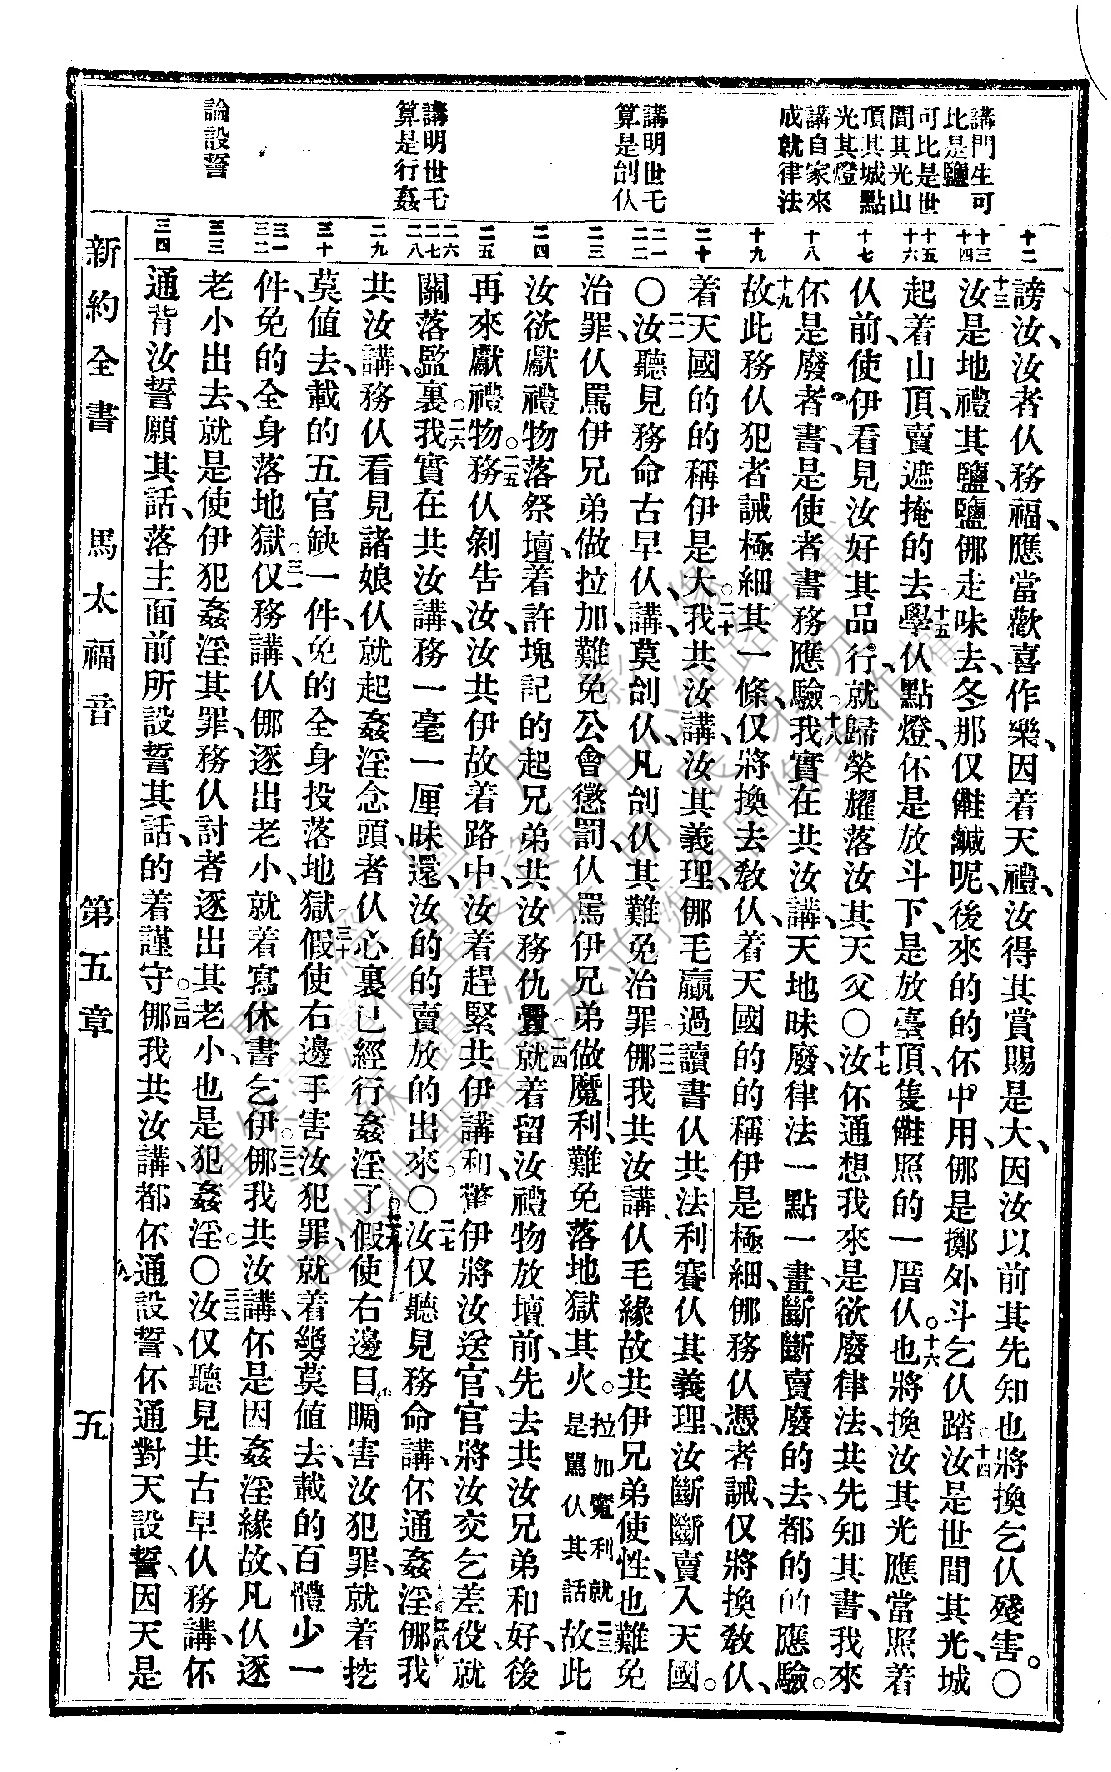 講門生可
比是鹽
可比是世
間其光山
頂其城點
光其燈
講自家來
成就律法
講明世乇
算是刣仈
講明世乇
算是行姦
論設誓
十二
十三
十四
十五
十六
十七
十八
十九
二十
二一
二二
二三
二四
二五
二六
二七
二八
二九
三十
三一
三二
三三
三四
謗汝、汝者仈務福、應當歡喜作樂、因着天禮、汝得其賞賜是大、因汝以前其先知也將換乞仈殘害。〇
十三汝是地禮其鹽、鹽㑚走味去、冬那仅㒰鹹呢、後來的的伓中用、㑚是擲外斗乞仈踏、十四汝是世間其光、城
起着山頂、賣遮掩的去、十五學仈點燈、伓是放斗下、是放臺頂、隻㒰照的一厝仈。十六也將換汝其光應當照着
仈前、使伊看見汝好其品行、就歸榮耀落汝其天父〇十七汝伓通想我來是欲廢律法、共先知其書、我來
伓是廢者書、是使者書務應驗、十八我實在共汝講、天地昧廢、律法一點一畫、斷斷賣廢的去、都的的應驗。
十九故此務仈犯者誡極細其一條、仅將換去敎仈、着天國的的稱伊是極細、㑚務仈憑者誡、仅將換敎仈、
着天國的的稱伊是大。二十我共汝講、汝其義理、㑚毛贏過讀書仈共法利賽仈其義理、汝斷斷賣入天國。
〇二一汝聽見務命古早仈講、莫刣仈、凡刣仈其難免治罪、二二㑚我共汝講、仈毛緣故共伊兄弟使性、也難免
治罪、仈罵伊兄弟做拉加、難免公會懲罰、仈罵伊兄弟做魔利、難免落地獄其火。拉加魔利就是罵仈其話二三故此
汝欲獻禮物落祭壇、着許塊記的起兄弟共汝務仇釁、二四就着留汝禮物放壇前、先去共汝兄弟和好、後
再來獻禮物。二五務仈剝告汝、汝共伊故着路中、汝着趕緊共伊講和、驚伊將汝送官、官將汝交乞差役、就
關落監裏。二六我實在共汝講、務一毫一厘昧還、汝的的賣放的出來〇二七汝仅聽見務命講、伓通姦淫、二八㑚我
共汝講、務仈看見諸娘仈就起姦淫念頭、者仈心裏已經行姦淫了、二九假使右邊目睭害汝犯罪、就着挖
莫値去、載的五官缺一件、免的全身投落地獄、三十假使右邊手害汝犯罪、就着𣍐莫値去、載的百體少一
件、免的全身落地獄。三一仅務講、仈㑚逐出老小、就着寫休書乞伊。三二㑚我共汝講、伓是因姦淫緣故、凡仈逐
老小出去、就是使伊犯姦淫其罪、務仈討者逐出其老小、也是犯姦淫。〇三三汝仅聽見共古早仈務講、伓
通背汝誓願其話、落主面前所設誓其話的着謹守、三四㑚我共汝講、都伓通設誓、伓通對天設誓、因天是
新約全書　馬太福音　第五章　五